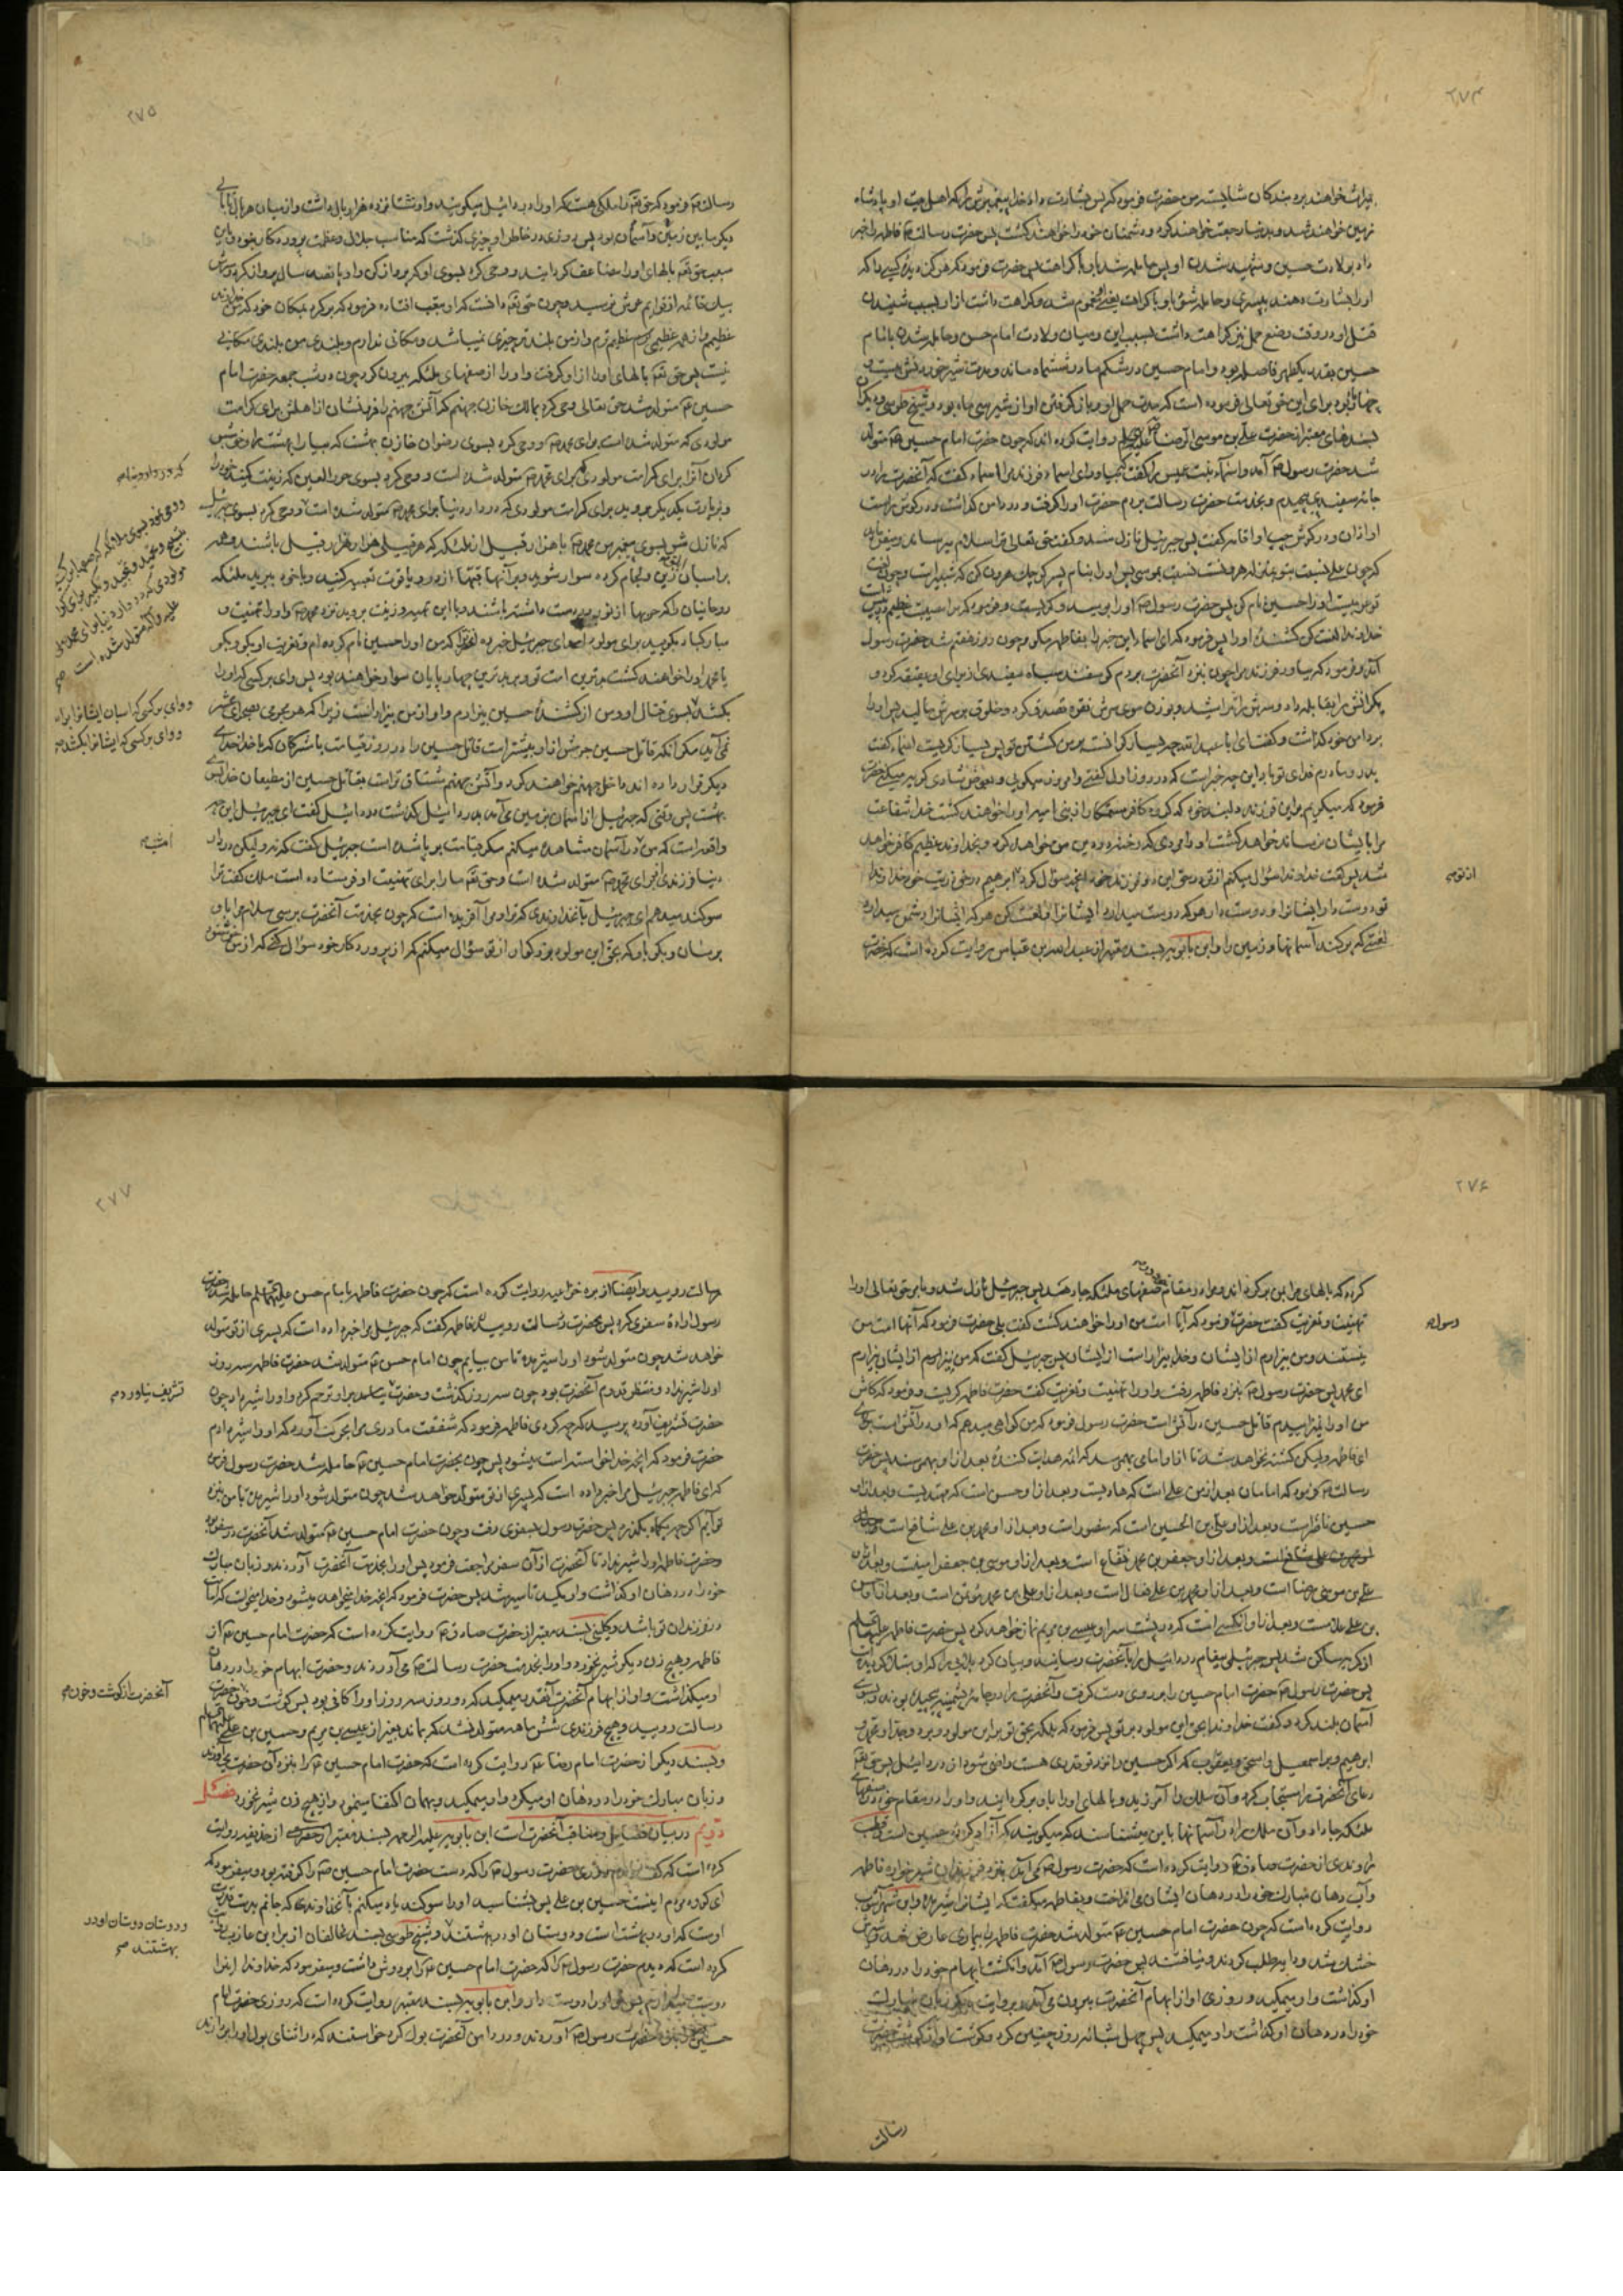 ۲۷۴
میراث خواهند برد بندگان شایسته من حضرت فرمود که پس بشارت داد خدا پیغمبرش را که اهل بیت او پادشاه
زمین خواهند شد و بدنیا رجعت خواهند کرد و دشمنان خود را خواهند کشت پس حضرت رسالت فاطمه را خبر
داد بولادت حسین و شهید شدن او پس حامله شد باو با کراهت پس حضرت فرمود که هرگز دیدۀ کسی را که
او را بشارت دهند بپسری و حامله شود باو با کراهت یعنی مغموم شد و کراهت داشت از او بسبب شنیدن
قتل او در وقت وضع حمل نیز کراهت داشت بسبب این و میان ولادت امام حسن و حامله شدن بامام
حسین بقدر یکطهر فاصله بود و امام حسین در شکم مادر ششماه ماند و مدت شیر خوردنش بیست و
چهار ماه بود برای این حق تعالی فرموده است که مدت حمل او و باز گرفتن او از شیر سی ماه بود و شیخ طوسی و دیگران
بسندهای معتبر از حضرت علی بن موسی الرضا روایت کرده اند که چون حضرت امام حسین متولد
شد حضرت رسول آمد و اسماء بنت عمیس را گفت که بیاور ای اسماء فرزند مرا اسماء گفت که آنحضرت را در
جامه سفیدی پیچیدم و بخدمت حضرت رسالت بردم حضرت او را گرفت و در دامن گذاشت و در گوش راست
او اذان و در گوش چپ او اقامه گفت پس جبرئیل نازل شد و گفت حق تعالی ترا سلام میرساند و میفرماید
که چون علی نسبت بتو بمنزله هرونست نسبت بموسی پس او را بنام پسر کوچک هرون کن که شبیر است و چون لغت
تو عربیست او را حسین نام کن پس حضرت رسول او را بوسید و گریست و فرمود که ترا مصیبت عظیم در پیش است
خداوندا لعنت کن کشندۀ او را پس فرمود که ای اسماء این خبر را بفاطمه مگو چون روز هفتم شد حضرت رسول
آمد و فرمود که بیاور فرزند مرا چون بنزد آنحضرت بردم گوسفند سیاه سفیدی از برای او عقیقه کرد و
یکرانش را بقابله داد و سرش را تراشید و بوزن موی سرش نقره تصدق کرد و خلوق بر سرش مالید پس او را
بر دامن خود گذاشت و گفت ای ابا عبدالله چه بسیار گرانست بر من کشتن تو پس بسیار گریست اسماء گفت
پدر و مادرم فدای تو باد این چه خبر است که در روز اول گفتی و امروز میگویی و بعوض شادی گریه میکنی حضرت
فرمود که میگریم برای این فرزند دلبند خود که گروه کافر ستمکار از بنی امیه او را خواهند کشت خدا شفاعت
مرا بایشان نرساند خواهد کشت او را مردی که رخنه در دین من خواهد کرد و بخداوند عظیم کافر خواهد
شد پس گفت خداوندا سؤال میکنم از تو در حق این دو فرزند خود آنچه سؤال کرد ابراهیم در حق ذریت خود خداوندا
تو دوست دار ایشانرا و دوست دار هر که دوست میدارد ایشانرا و لعنت کن هر که ایشانرا دشمن میدارد
لعنتی که پر کند آسمانها و زمین را و ابن بابویه بسند معتبر از عبدالله بن عباس روایت کرده است که حضرت
از تو
۲۷۵
رسالت فرمود که حق تعالی را ملکی هست که او را دردائیل میگویند و او شانزده هزار بال داشت و از میان هر بال تا بال
دیگر مابین زمین و آسمان بود پس روزی در خاطر او چیزی گذشت که مناسب جلال و عظمت پروردگار نبود و باین
سبب حق بالهای او را مضاعف گردانید و وحی کرد بسوی او که پرواز کن و او پانصد سال پرواز کرد و سرش
بیک قائمه از قوایم عرش نرسید و چون حق دانست که او بتعب افتاده فرمود که برگرد بمکان خود که من خداوند
عظیمم و از همه عظیمی عظیم ترم و از من بلند تر چیزی نمیباشد و مکانی ندارم و بلندی من بلندی مکانی
نیست پس حق بالهای او را از او گرفت و او را از صفهای ملئکه بیرون کرد چون در شب جمعه حضرت امام
حسین متولد شد حق تعالی وحی کرد بمالک خازن جهنم که آتش جهنم را فرونشان از اهلش برای کرامت
مولودی که متولد شده است برای محمد و وحی کرد بسوی رضوان خازن بهشت که بیارا بهشت را و خوشبو
گردان آنرا برای کرامت مولودی که برای محمد متولد شده است و وحی کرد بسوی حور العین که زینت کنید خود را
و بزیارت یکدیگر بروید برای کرامت مولودی که در دار دنیا برای محمد متولد شده است و وحی کرد بسوی جبرئیل
که نازل شو بسوی پیغمبر من محمد با هزار قبیل از ملئکه که هر قبیلی هزار هزار قبیل باشند و همه
بر اسبان ابلق زین و لجام کرده سوار شوید و بر آنها قبه‌ها از در و یاقوت تعبیه کنید و با خود ببرید ملئکه
روحانیان را که حربها از نور بدست داشته باشند و با این تهیه و زینت بروید نزد محمد و او را تهنیت و
مبارکباد بگویید برای مولود او و ای جبرئیل خبر ده محمد را که من او را حسین نام کرده ام و تعزیت او بگو و بگو
یا محمد او را خواهند کشت بدترین امت تو و بر بدترین چهارپایان سوار خواهند بود پس وای بر کسی که او را
بکشد بسوی قتال او و من از کشندۀ حسین بیزارم و او از من بیزار است زیرا که هر مجرمی بصحرای محشر
نمی آید مگر آنکه قاتل حسین جرمش از او بیشتر است قاتل حسین را در روز قیامت با مشرکان که با خدا خدای
دیگر قرار داده اند داخل جهنم خواهند کرد و آتش جهنم مشتاق تر است بقاتل حسین از مطیعان خدا بسوی
بهشت پس وقتی که جبرئیل از آسمان بزمین می آمد بدردائیل گذشت دردائیل گفت ای جبرئیل این چه
واقعه است که من در آسمان مشاهده میکنم مگر قیامت بر پا شده است جبرئیل گفت که نه ولیکن در دار
دنیا فرزندی از برای محمد متولد شده است و حق ما را برای تهنیت او فرستاده است ملک گفت ترا
سوگند میدهم ای جبرئیل بآنخداوندی که ترا و مرا آفریده است که چون بخدمت آنحضرت برسی سلام مرا باو
برسان و بگو باو که بحق این مولود بزرگوار از تو سؤال میکنم که از پروردگار خود سؤال کنی که از من خوشنود
که در دار دنیا
ووحی نمود بسوی ملائکه که صفها برکشید
بتسبیح و تحمید و تمجید و تکبیر برای کرامت
مولودی که در دار دنیا برای محمد صلی
علیه و آله متولد شده است
و وای بر کسی که اسبان ایشانرا براند
و وای بر کسی که ایشانرا بکشد
امشب
۲۷۶
گردد که بالهای مرا بمن برگرداند و مرا در مقام صفهای ملئکه جا دهد پس جبرئیل نازل شد و بامر حق تعالی او را
تهنیت و تعزیت گفت حضرت فرمود که آیا امت من او را خواهند کشت گفت بلی حضرت فرمود که آنها امت من
نیستند و من بیزارم از ایشان و خدا بیزار است از ایشان پس جبرئیل گفت که من نیز بیزارم از ایشان
ای محمد پس حضرت رسول بنزد فاطمه رفت و او را تهنیت و تعزیت گفت حضرت فاطمه گریست و فرمود که کاش
من او را نمیزاییدم قاتل حسین در آتش است حضرت رسول فرمود که من گواهی میدهم که او در آتش است
ای فاطمه ولیکن کشته نخواهد شد تا از او امامی بهم رسد که ائمه هدایت کننده بعد از او بهم رسند پس حضرت
رسالت فرمود که امامان بعد از من علی است که هادیست و بعد از او حسن است که مهتدیست و بعد از او
حسین ناصر است و بعد از او علی بن الحسین است که منصور است و بعد از او محمد بن علی شافع است
و بعد از او جعفر بن محمد نفاع است و بعد از او موسی بن جعفر امینست و بعد از او
علی بن موسی رضا است و بعد از او محمد بن علی فعال است و بعد از او علی بن محمد مؤتمن است و بعد از او حسن
بن علی علامست و بعد از او آنکسی است که در پشت سر او عیسی بن مریم نماز خواهد کرد پس حضرت فاطمه
از گریه ساکن شد پس جبرئیل پیغام دردائیل را بآنحضرت رسانید و بیان کرد
پس حضرت رسول حضرت امام حسین را بر روی دست گرفت و آنحضرت را در جامه پشمینه پیچیده بودند و بسوی
آسمان بلند کرد و گفت خداوندا بحق این مولود بر تو پس فرمود که بلکه بحق تو بر این مولود و بر جد او محمد و
ابرهیم و بر اسمعیل و اسحق و یعقوب که اگر حسین را نزد تو قدری هست راضی شو از دردائیل پس حق
دعای آنحضرت را مستجاب کرد و آن ملک را آمرزید و بالهای او را باو برگردانید و او را در مقام خود در صفهای
ملئکه جا داد و آن ملک را در آسمانها باین میشناسند که میگویند که آزاد کردۀ حسین است و قطب
راوندی از حضرت صادق روایت کرده است که حضرت رسول می آمد بنزد فرزندان شیرخوارۀ فاطمه
و آب دهان مبارک خود را در دهان ایشان می انداخت و بفاطمه میگفت که ایشانرا شیر مده و ابن شهرآشوب
روایت کرده است که چون حضرت امام حسین متولد شد حضرت فاطمه را بیماری عارض شد و شیرش
خشک شد و دایه طلب کردند و نیافتند پس حضرت رسول آمد و انگشت ابهام خود را در دهان
او گذاشت و او میمکید و روزی او از ابهام آنحضرت بیرون می آمد و بروایت دیگر زبان مبارک
خود را در دهان او گذاشت و او میمکید پس چهل شبانه روز چنین کرد و گوشت او از گوشت حضرت
رسول
رسالت
۲۷۷
رسالت رویید و ایضا از بره خزاعیه روایت کرده است که چون حضرت فاطمه بامام حسن حامله شد حضرت
رسول ارادۀ سفری کرد پس بحضرت فاطمه گفت که جبرئیل مرا خبر داده است که پسری از تو متولد
خواهد شد چون متولد شود او را شیر مده تا من بیایم چون امام حسن متولد شد حضرت فاطمه سه روز
او را شیر نداد و منتظر قدوم آنحضرت بود چون سه روز گذشت و حضرت نیامد بر او ترحم کرد و او را شیر داد چون
حضرت تشریف آورد پرسید که چه کردی فاطمه فرمود که شفقت مادری مرا بحرکت آورد که او را شیر دادم
حضرت فرمود که آنچه خدا خواسته است میشود پس چون بحضرت امام حسین حامله شد حضرت رسول فرمود
که ای فاطمه جبرئیل مرا خبر داده است که پسری از تو متولد خواهد شد چون متولد شود او را شیر مده تا من بنزد
تو آیم اگر چه یکماه بگذرد پس حضرت رسول بسفری رفت و چون حضرت امام حسین متولد شد آنحضرت در سفر بود
و حضرت فاطمه او را شیر نداد تا آنحضرت از آن سفر مراجعت فرمود پس او را بخدمت آنحضرت آوردند و زبان مبارک
خود را در دهان او گذاشت و او مکید تا سیر شد پس حضرت فرمود که آنچه خدا میخواهد میشود و خدا میخواست که امامت
در فرزندان تو باشد و کلینی بسند معتبر از حضرت صادق روایت کرده است که حضرت امام حسین از
فاطمه و هیچ زن دیگر شیر نخورد و او را بخدمت حضرت رسالت می آوردند و حضرت ابهام خود را در دهان
او میگذاشت و او از ابهام آنحضرت آنقدر میمکید که دو روز سه روز او را کافی بود پس گوشت و خون حضرت
رسالت رویید و هیچ فرزندی شش ماهه متولد نشد که بماند بغیر از عیسی بن مریم و حسین بن علی
و بسند دیگر از حضرت امام رضا روایت کرده است که حضرت امام حسین را بنزد آن حضرت می آوردند
و زبان مبارک خود را در دهان او میگذاشت و او میمکید و بهمان اکتفا مینمود و از هیچ زن شیر نخورد فصل
دویم در بیان فضایل و مناقب آنحضرت است ابن بابویه علیه الرحمه بسند معتبر از حذیفه روایت
کرده است که گفت دیدم روزی حضرت رسول را که دست حضرت امام حسین را گرفته بود و میفرمود که
ای گروه مردم اینست حسین بن علی پس بشناسید او را سوگند یاد میکنم بآنخداوندی که جانم بدست قدرت
اوست که او در بهشت است و دوستان او در بهشتند و شیخ طوسی بسند مخالفان از براء بن عازب روایت
کرده است که دیدم حضرت رسول را که حضرت امام حسین را بر دوش داشت و میفرمود که خداوندا این را
دوست میدارم پس تو او را دوست دار و ابن بابویه بسند معتبر روایت کرده است که روزی حضرت امام
حسین را بنزد حضرت رسول آوردند و در دامن آنحضرت بول کرد خواستند که در اثنای بول او را بردارند
تشریف نیاورد
آنحضرت از گوشت و خون
و دوستان دوستان او در
بهشتند